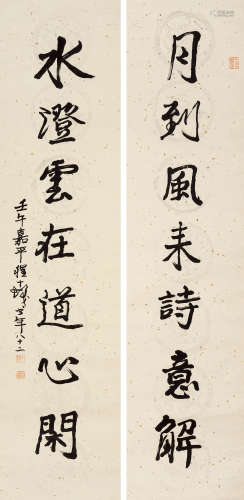 月到風来詩意解
水澄雲在道心閑
壬午嘉平
年八十二